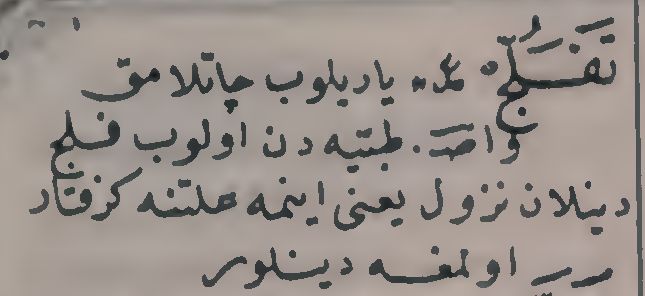 تَفَلُّجْ عد یاریلوب چاتلامق
واصـ. طبیه دن اولوب فلج
دینلان نزول یعنی اینمه علتنه کرفتار
اولمغه دینلور